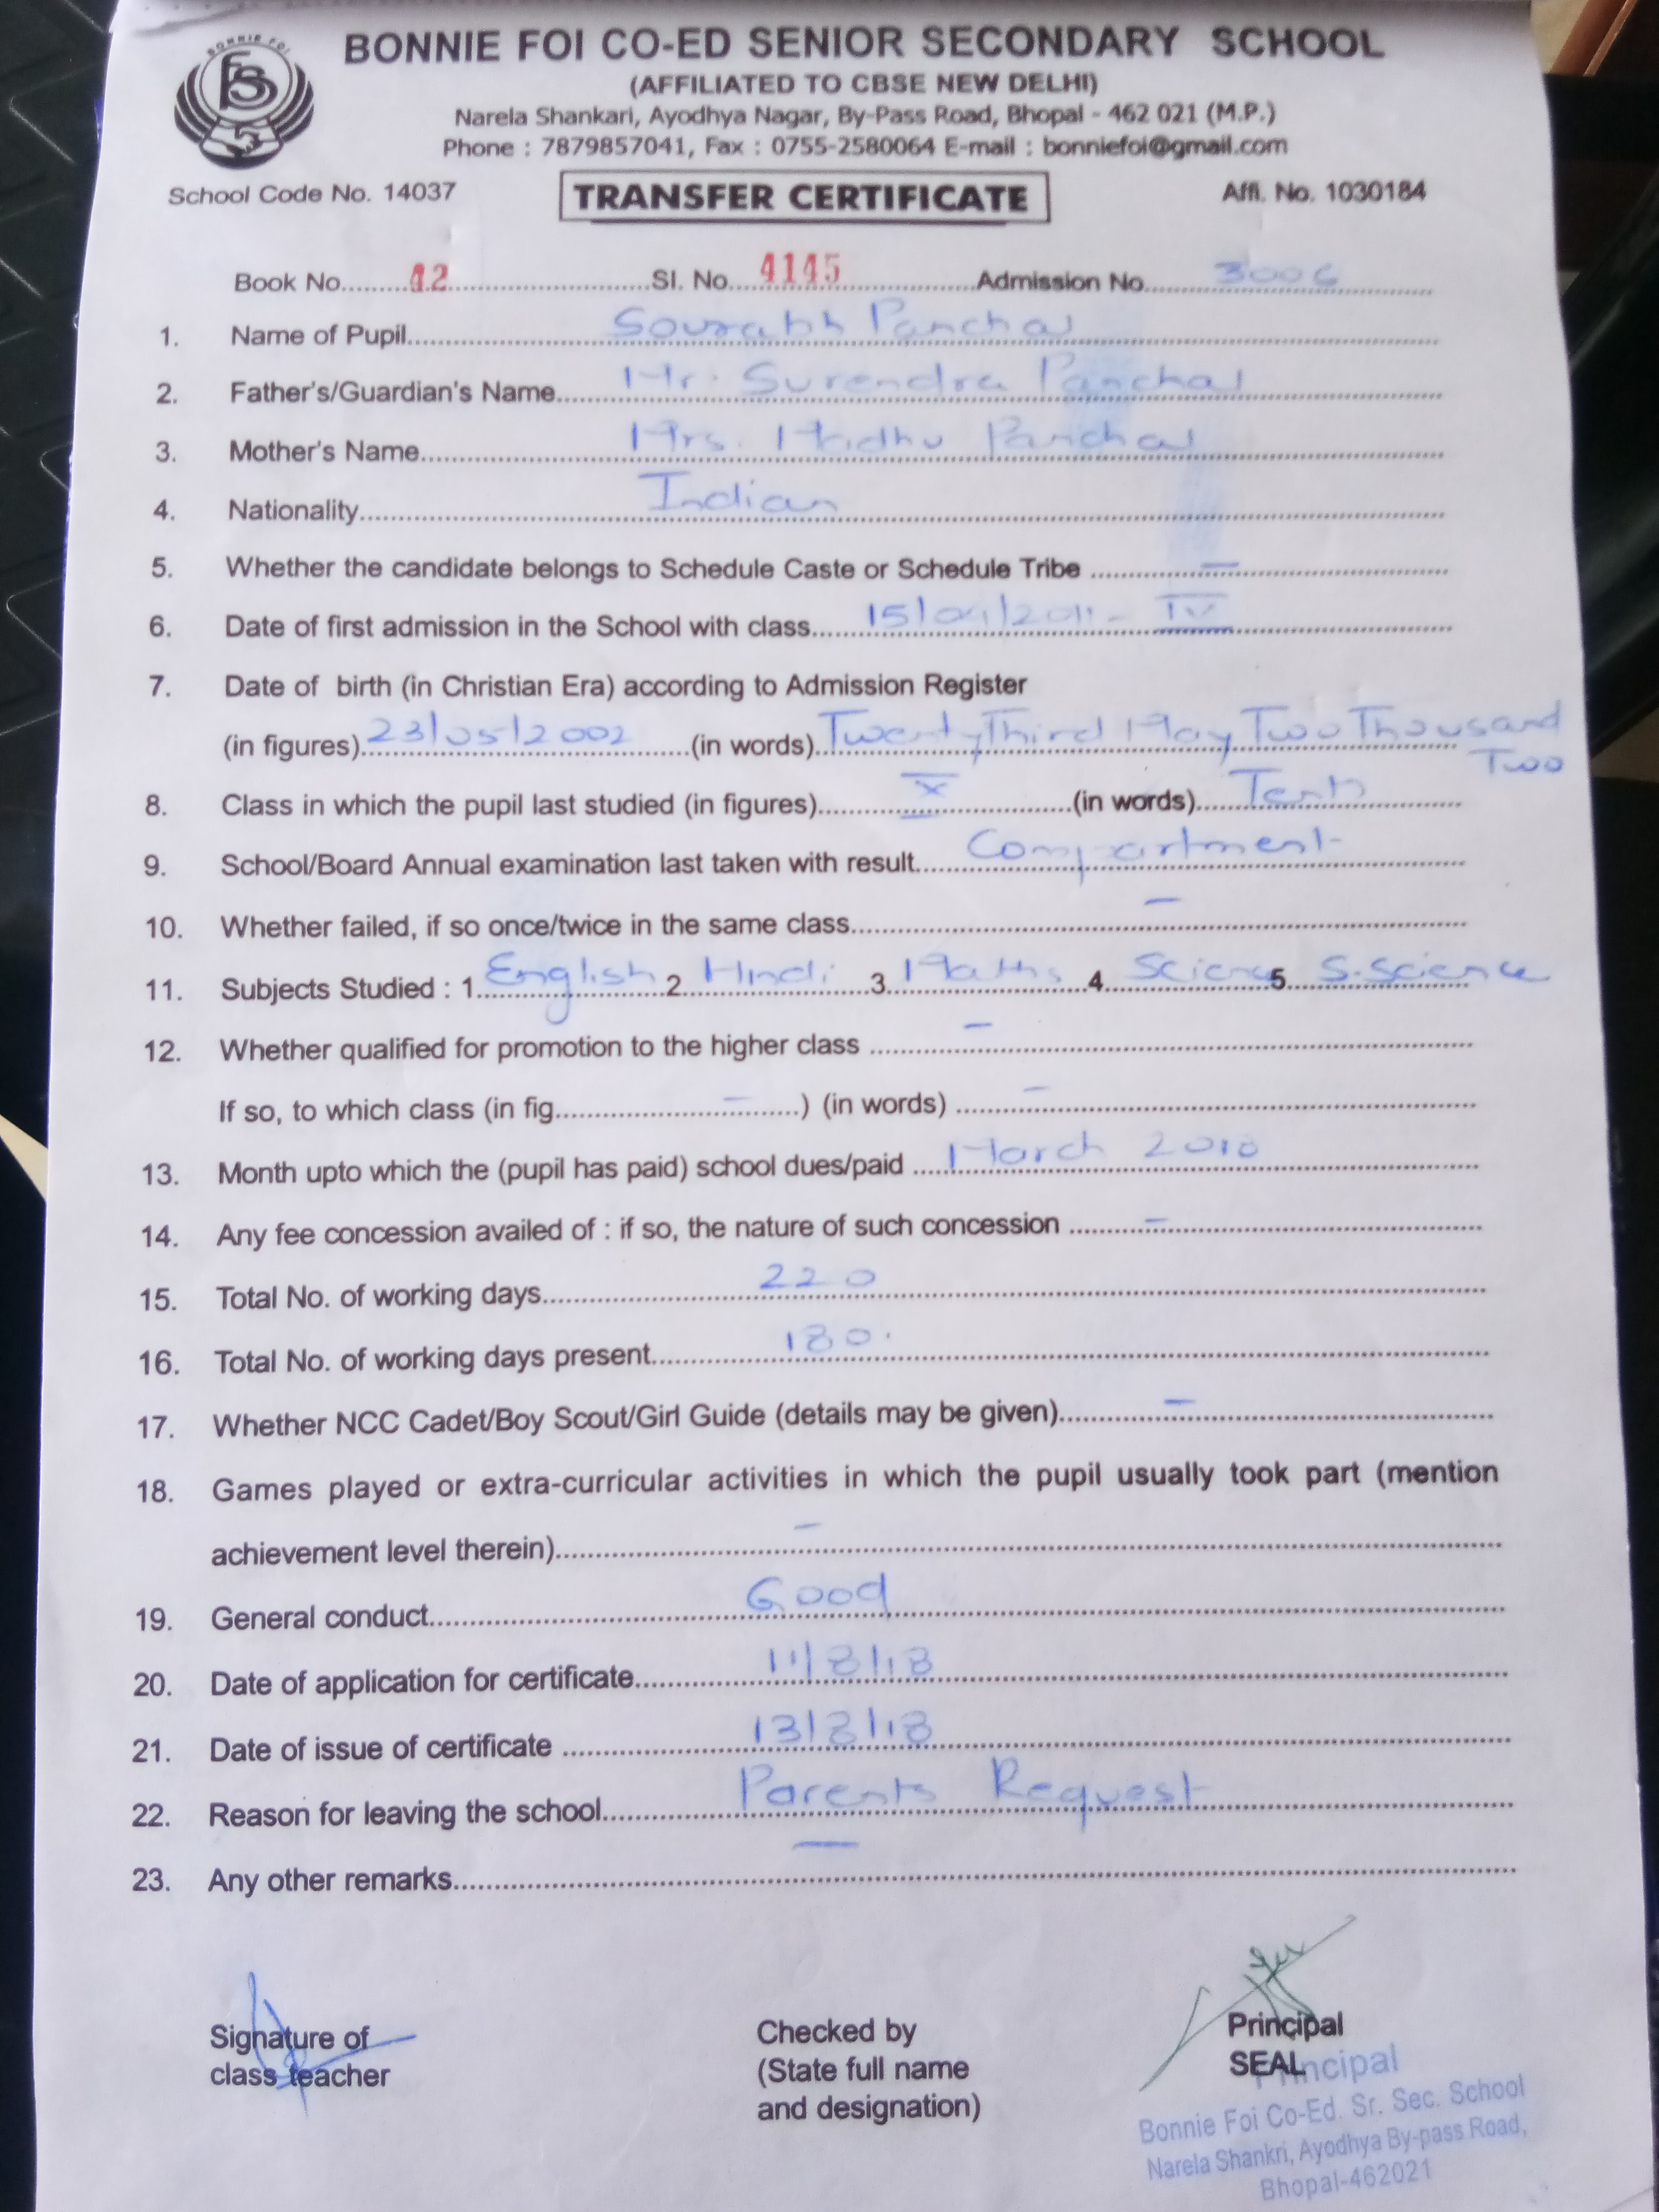 BONNIE FOI
FS
BONNIE FOI CO-ED SENIOR SECONDARY SCHOOL
(AFFILIATED TO CBSE NEW DELHI)
Narela Shankari, Ayodhya Nagar, By-Pass Road, Bhopal - 462 021 (M.P.)
Phone : 7879857041, Fax : 0755-2580064 E-mail : bonniefoi@gmail.com
School Code No. 14037 TRANSFER CERTIFICATE Affi. No. 1030184
Book No. 42 Sl. No. 4145 Admission No. 3006
1. Name of Pupil Sourabh Panchal
2. Father's/Guardian's Name Mr. Surendra Panchal
3. Mother's Name Mrs. Madhu Panchal
4. Nationality Indian
5. Whether the candidate belongs to Schedule Caste or Schedule Tribe —
6. Date of first admission in the School with class 15/04/2011 - IV
7. Date of birth (in Christian Era) according to Admission Register
(in figures) 23/05/2002 (in words) Twenty Third May Two Thousand
Two
8. Class in which the pupil last studied (in figures) X (in words) Tenth
9. School/Board Annual examination last taken with result Compartment
10. Whether failed, if so once/twice in the same class —
11. Subjects Studied : 1 English 2 Hindi 3 Maths 4 Science 5 S.Science
12. Whether qualified for promotion to the higher class —
If so, to which class (in fig. — ) (in words) —
13. Month upto which the (pupil has paid) school dues/paid March 2018
14. Any fee concession availed of : if so, the nature of such concession —
15. Total No. of working days 220
16. Total No. of working days present 180.
17. Whether NCC Cadet/Boy Scout/Girl Guide (details may be given) —
18. Games played or extra-curricular activities in which the pupil usually took part (mention
achievement level therein) —
19. General conduct Good
20. Date of application for certificate 11/8/18
21. Date of issue of certificate 13/8/18
22. Reason for leaving the school Parents Request
23. Any other remarks —
Signature of
class teacher
Checked by
(State full name
and designation)
Principal
SEAL
Principal
Bonnie Foi Co-Ed. Sr. Sec. School
Narela Shankri, Ayodhya By-pass Road,
Bhopal-462021